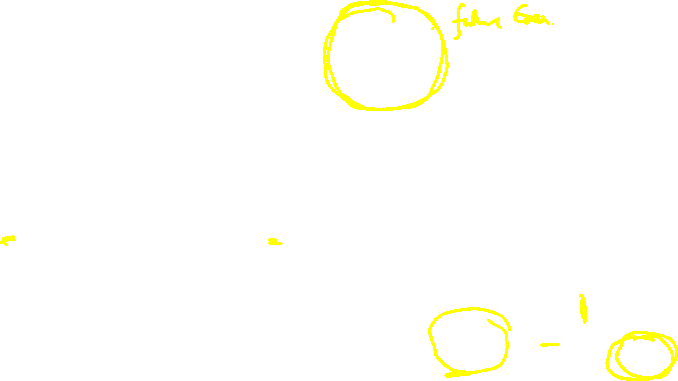 future Gen.